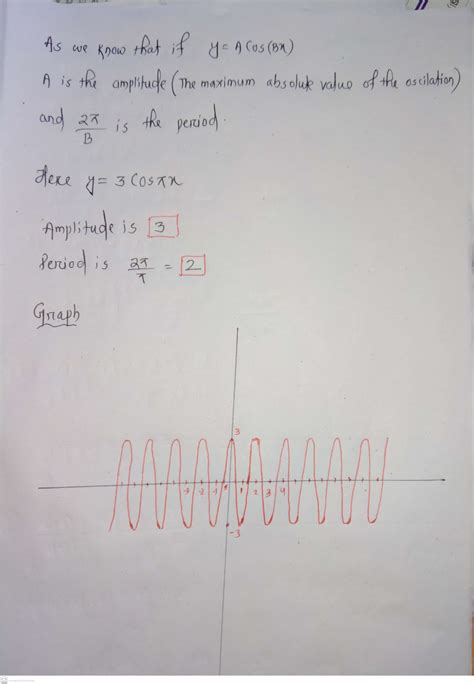 As we know that if y = A Cos(Bx)
A is the amplitude (The maximum absolute value of the oscilation)
and 2π/B is the period.
Here y = 3 Cosπx
Amplitude is 3
Period is 2π/π = 2
Graph
3
-3 -2 -1 0 1 2 3 4
-3